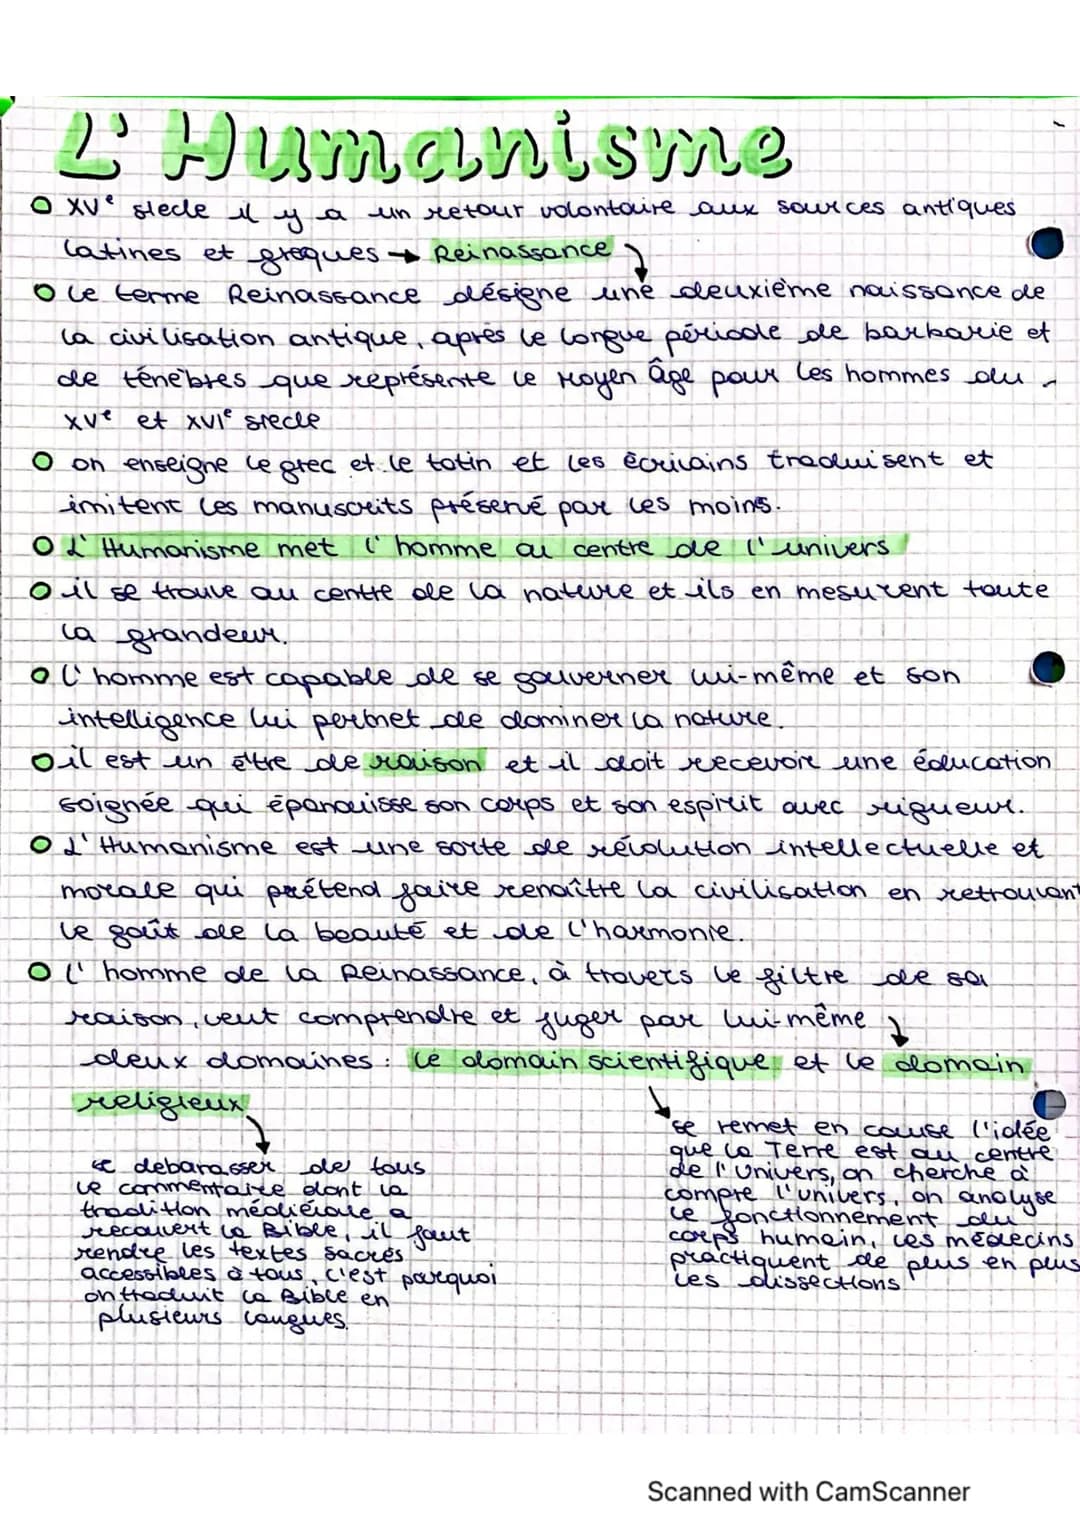 L'Humanisme
XVe siecle il y a un retour volontaire aux sources antiques
latines et greques → Reinassance
le terme Reinassance désigne une deuxième naissance de
la civilisation antique, après le longue période de barbarie et
de ténèbres que représente le Moyen Âge pour les hommes du
XVe et XVIe siecle
on enseigne le grec et le latin et les écrivains traduisent et
imitent les manuscrits préservé par les moins.
L'Humanisme met l'homme au centre de l'univers
il se trouve au centre de la nature et ils en mesurent toute
la grandeur.
l'homme est capable de se gouverner lui-même et son
intelligence lui permet de dominer la nature.
il est un être de raison et il doit recevoir une éducation
soignée qui épanouisse son corps et son espirit avec rigueur.
L'Humanisme est une sorte de révolution intellectuelle et
morale qui prétend faire renaître la civilisation en retrouvant
le goût de la beauté et de l'harmonie.
l'homme de la Reinassance, à travers le filtre de sa
raison, veut comprendre et juger par lui-même
deux domaines : le domain scientifique et le domain
religieux
se debarasser de tous
le commentaire dont la
tradition médiévale a
recouvert la Bible, il faut
rendre les textes sacrés
accessibles à tous, c'est parquoi
on traduit la Bible en
plusieurs langues.
se remet en cause l'idée
que la Terre est au centre
de l'Univers, on cherche à
compre l'univers, on analyse
le fonctionnement du
corps humain, les médecins
practiquent de plus en plus
les dissections
Scanned with CamScanner